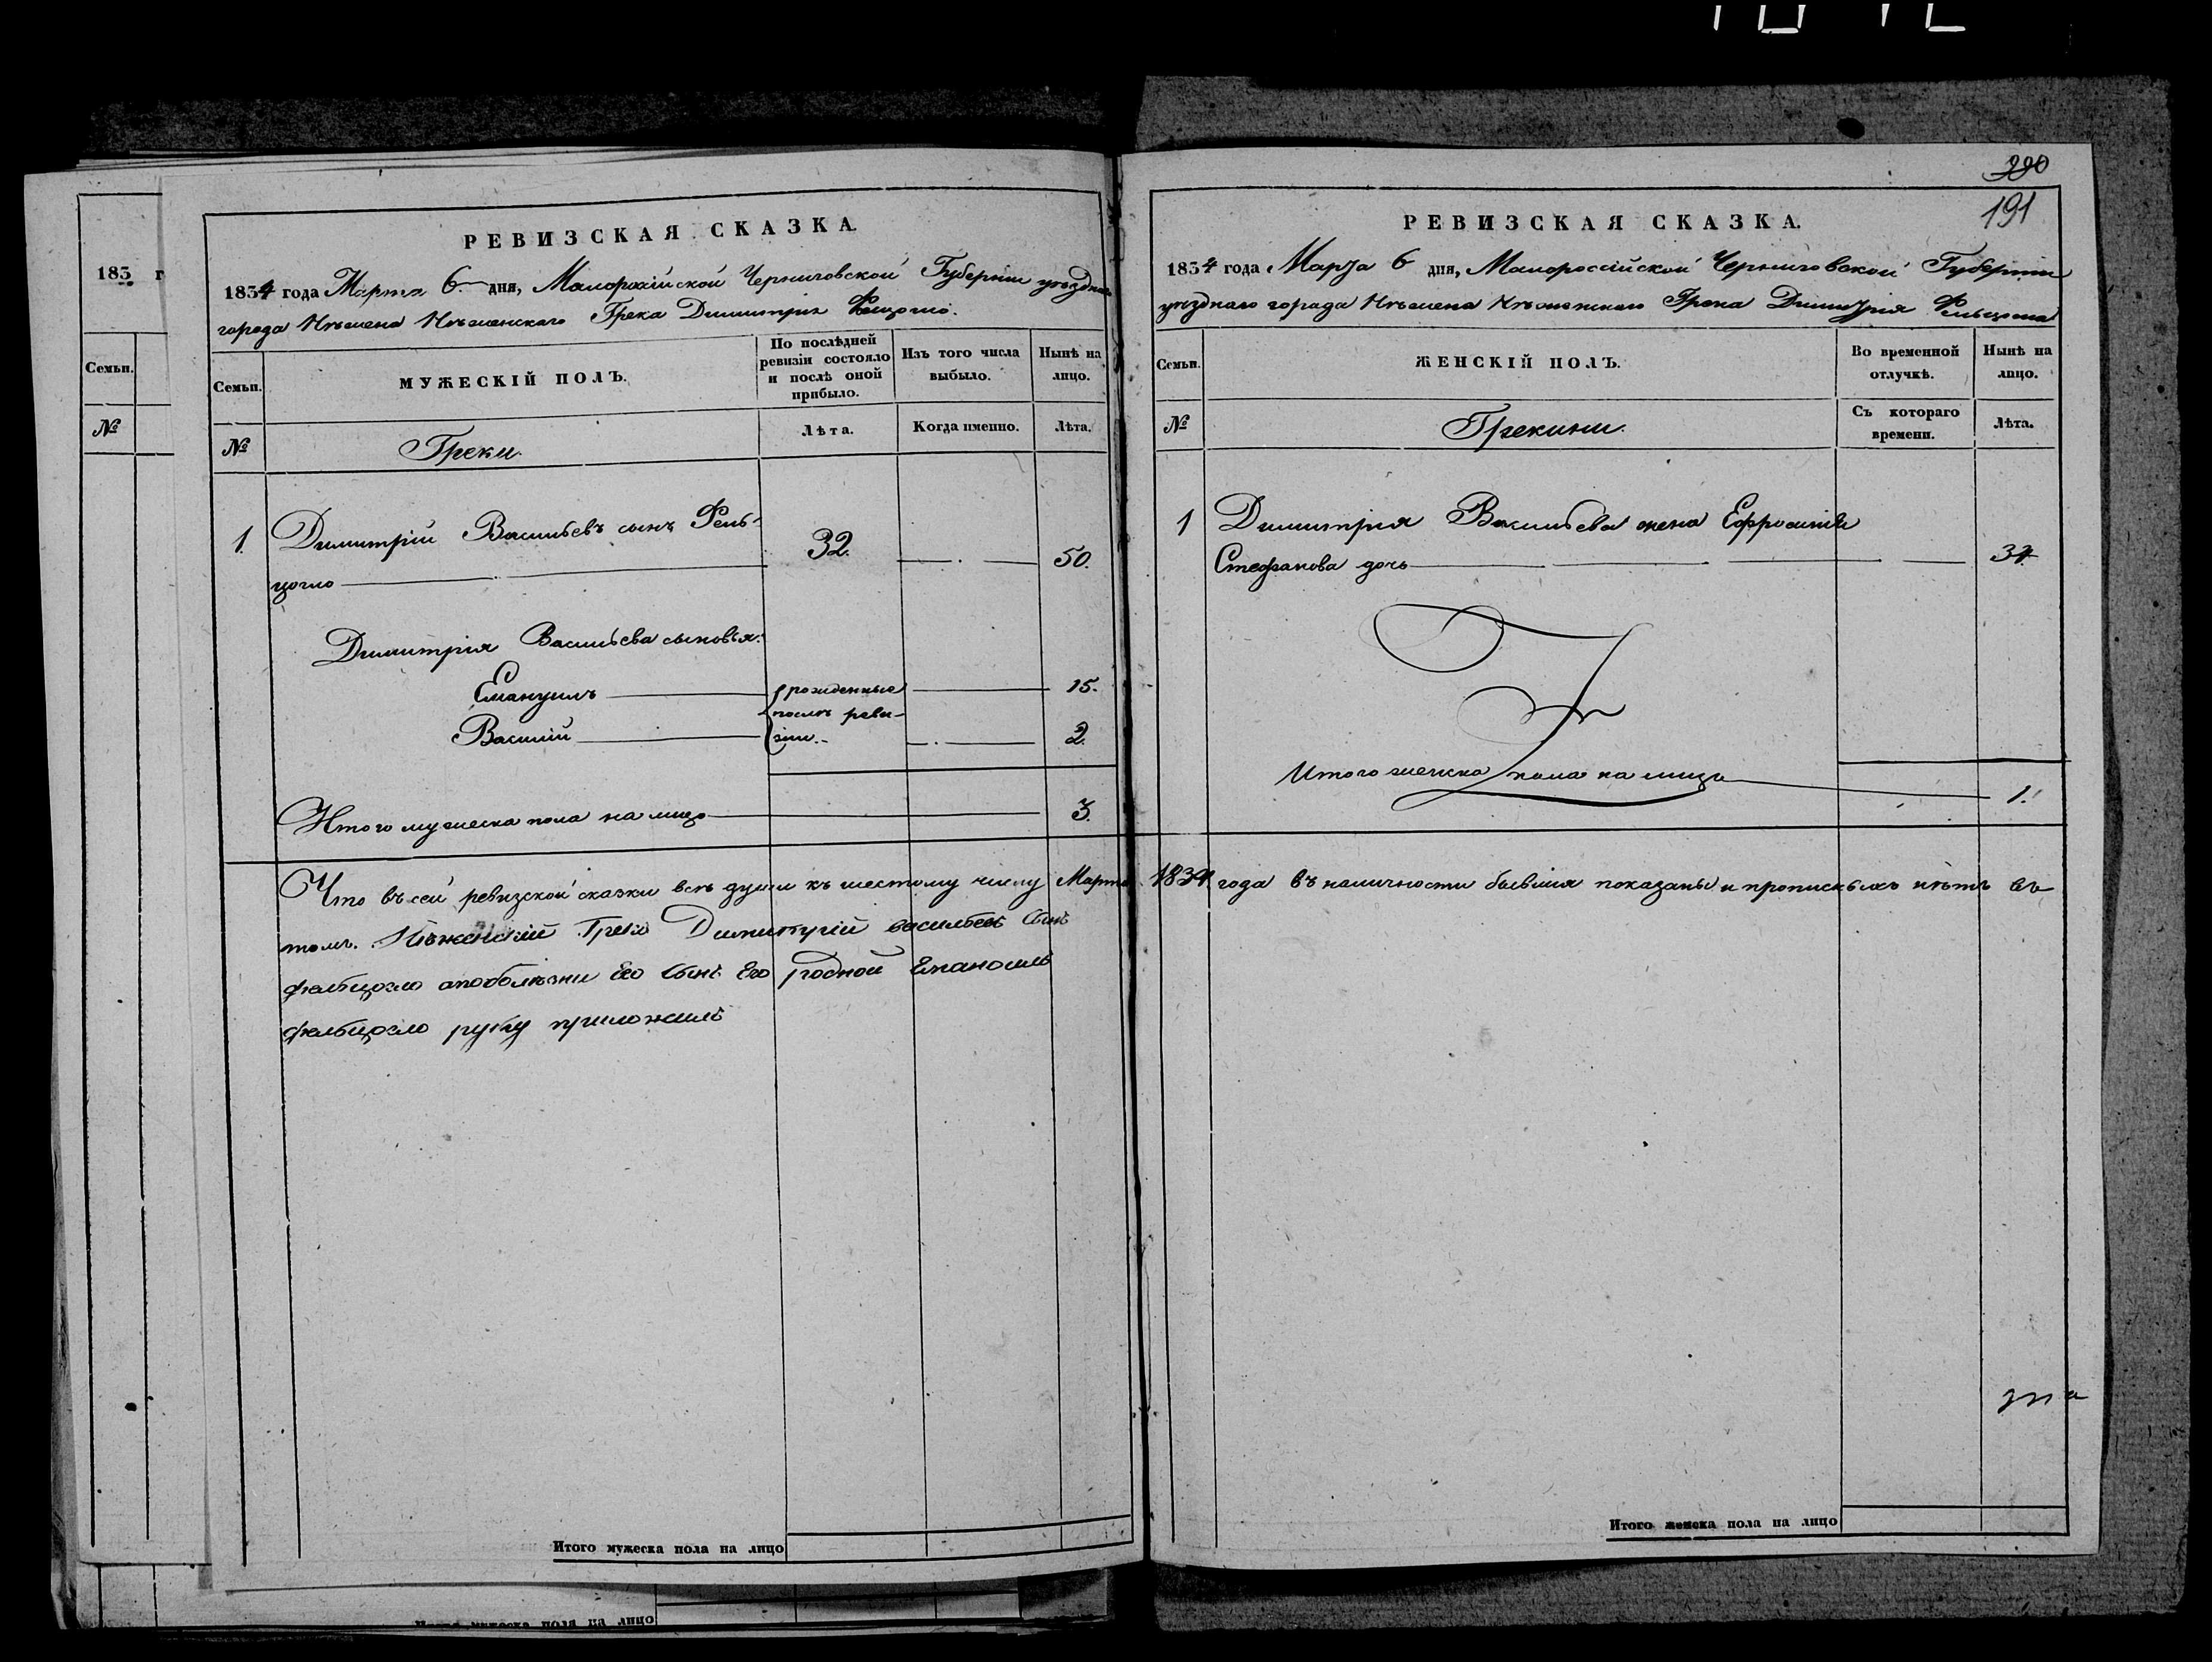 290
191
183 г
Семьи.
№
РЕВИЗСКАЯ СКАЗКА.
1834 года Марта 6 дня, Малороссійской Черниговской Губерніи уѣзднаго
города Нѣжена Нѣженскаго Грека Димитрія
Семьи.
МУЖЕСКІЙ ПОЛЪ.
По послѣдней ревизіи состояло и послѣ оной прибыло.
Изъ того числа выбыло.
Нынѣ на лицо.
№
Греки.
Лѣта.
Когда именно.
Лѣта.
1. Димитрій Васильевъ сынъ Фель-
цогло
32.
50.
Димитрія Васильева сыновья:
Емануилъ
рожденные
15.
послѣ реви-
Василій
зіи.
2.
Итого мужеска пола на лицо
3.
РЕВИЗСКАЯ СКАЗКА.
1834 года Марта 6 дня, Малороссійской Черниговской Губерніи
уѣзднаго города Нѣжена Нѣженскаго Грека Димитрія
Семьи.
ЖЕНСКІЙ ПОЛЪ.
Во временной отлучкѣ.
Нынѣ на лицо.
№
Грекини.
Съ котораго времени.
Лѣта.
1 Димитрія Васильева жена Ефросинія
Стефанова дочь
Итого женска пола на лицо
1.
Что въ сей ревизской сказки всѣ души къ шестому числу Марта 1834 года въ наличности бывшія показаны и прописныхъ нѣтъ въ
томъ. Нѣженскій Грекъ Димитрій васильевъ Сынъ
фельцогло апоболѣзни Его Сынъ Его родной Емануилъ
фельцогло руку приложилъ
Итого мужеска пола на лицо
Итого женска пола на лицо
Итого мужеска пола на лицо